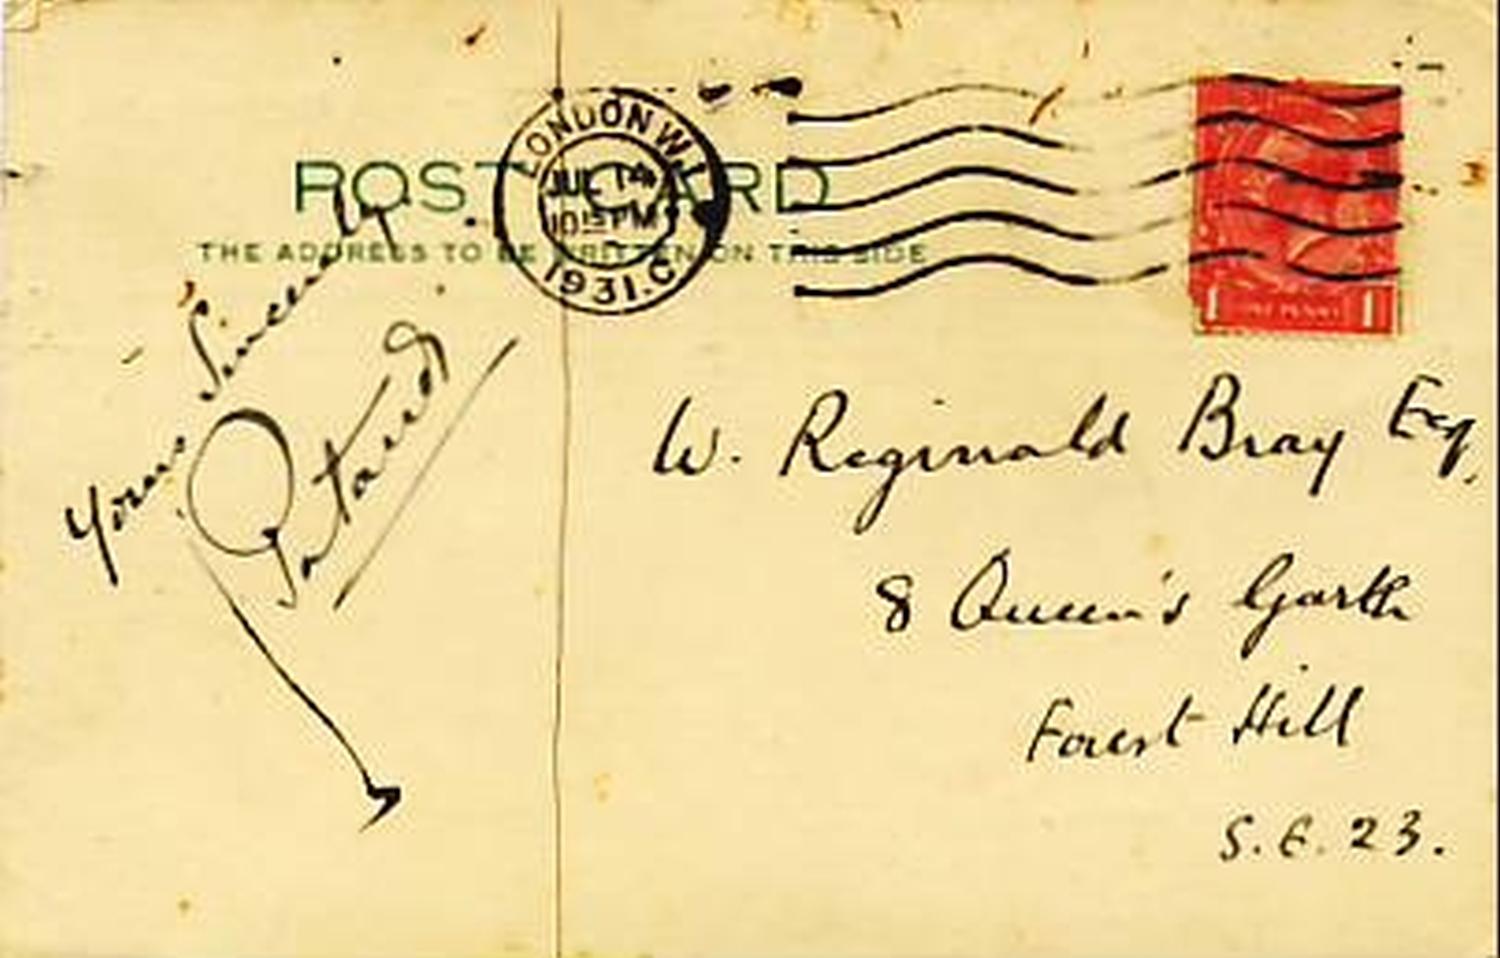 POST CARD
THE ADDRESS TO BE WRITTEN ON THIS SIDE
LONDON W.1
JUL 14
10 15 PM
1931.C
1 ONE PENNY 1
Yours Sincerely
W. Reginald Bray Esq.
8 Queen's Garth
Forest Hill
S.E. 23.